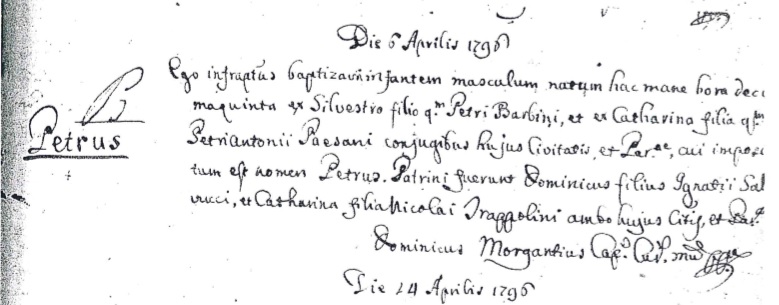 Die 6 Aprilis 1796
Ego infraptus baptizavi infantem masculum natum hac mane hora deci
maquinta ex Silvestro filio qm Petri Barbini, et ex Catharina filia qm
B
Petrus
Petri Antonii Paesani conjugibus hujus Civitatis, et Parae, cui imposi
tum est nomen Petrus. Patrini fuerunt Dominicus filius Ignatii Sal
vucci, et Catharina filia Nicolai Trappolini ambo hujus Citis, et Par.
Dominicus Morgantius Cap. Cur.
Die 14 Aprilis 1796